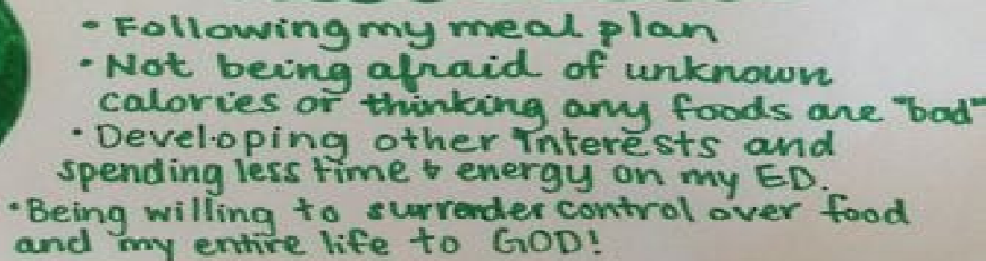 - Following my meal plan
• Not being afraid of unknown
calories or thinking any foods are "bad"
• Developing other interests and
spending less time & energy on my ED.
• Being willing to surrender control over food
and my entire life to GOD!